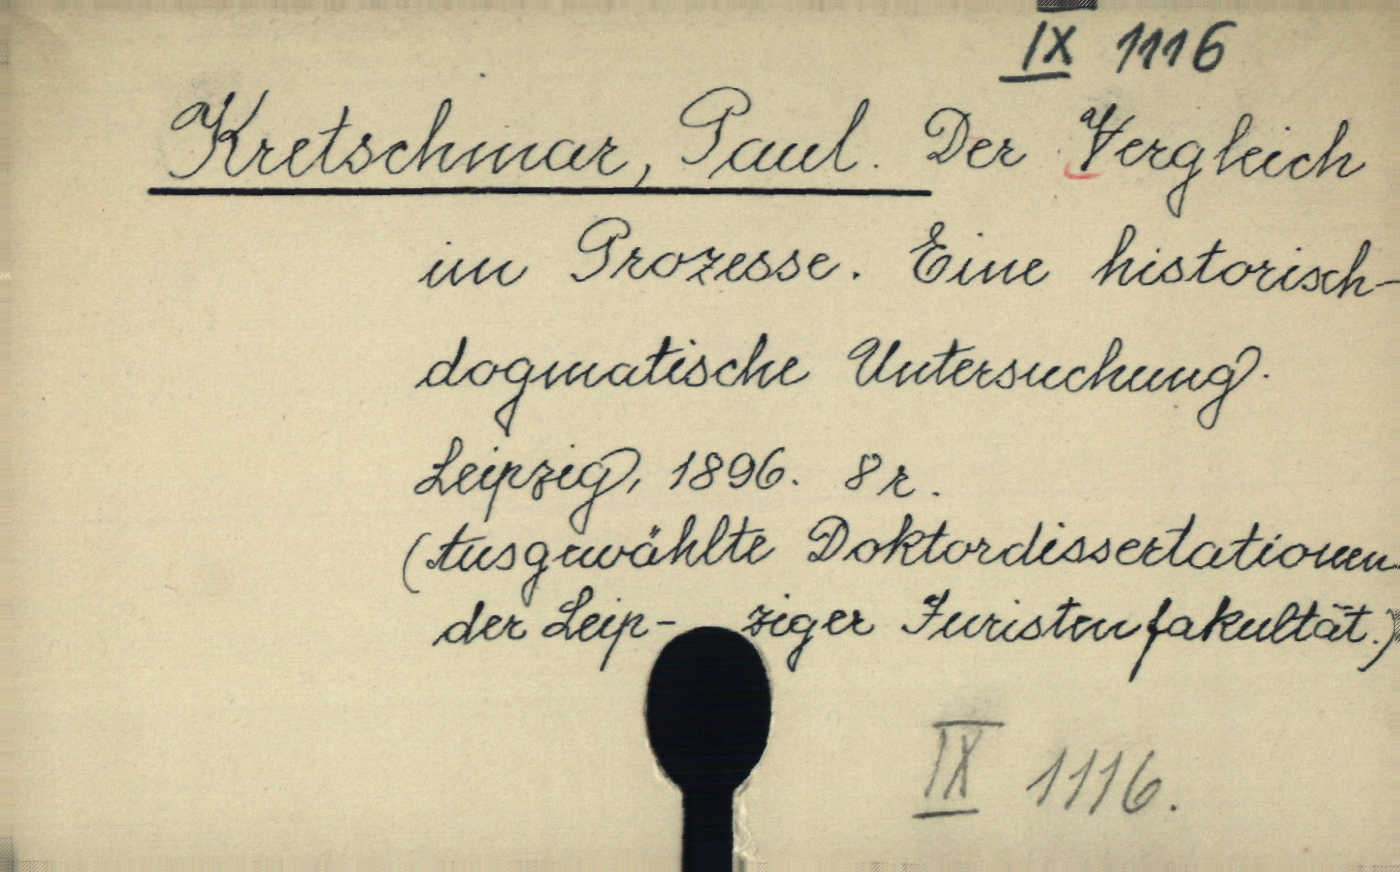 IX 1116
Kretschmar, Paul. Der Vergleich
im Prozesse. Eine historisch-
dogmatische Untersuchung.
Leipzig, 1896. 8 r.
(Ausgewählte Doktordissertationen
der Leip- ziger Juristenfakultät.)
IX 1116.